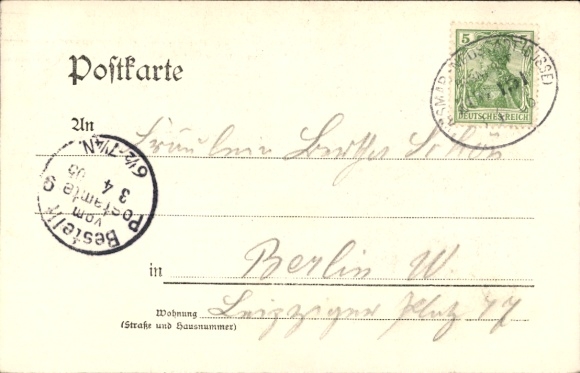 Postkarte
5 5
DEUTSCHES REICH
An Fräulein Bertha
Bestellt
vom
Postamte 9
3 4 05
6½-7¼N.
in Berlin W.
Wohnung Leipziger Platz 77
(Straße und Hausnummer)